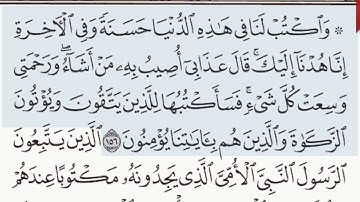 ۞ وَٱكْتُبْ لَنَا فِي هَٰذِهِ ٱلدُّنْيَا حَسَنَةً وَفِي ٱلْآخِرَةِ
إِنَّا هُدْنَآ إِلَيْكَ ۚ قَالَ عَذَابِيٓ أُصِيبُ بِهِۦ مَنْ أَشَآءُ ۖ وَرَحْمَتِي
وَسِعَتْ كُلَّ شَيْءٍ ۚ فَسَأَكْتُبُهَا لِلَّذِينَ يَتَّقُونَ وَيُؤْتُونَ
ٱلزَّكَوٰةَ وَٱلَّذِينَ هُم بِـَٔايَٰتِنَا يُؤْمِنُونَ ١٥٦ ٱلَّذِينَ يَتَّبِعُونَ
ٱلرَّسُولَ ٱلنَّبِيَّ ٱلْأُمِّيَّ ٱلَّذِي يَجِدُونَهُۥ مَكْتُوبًا عِندَهُمْ